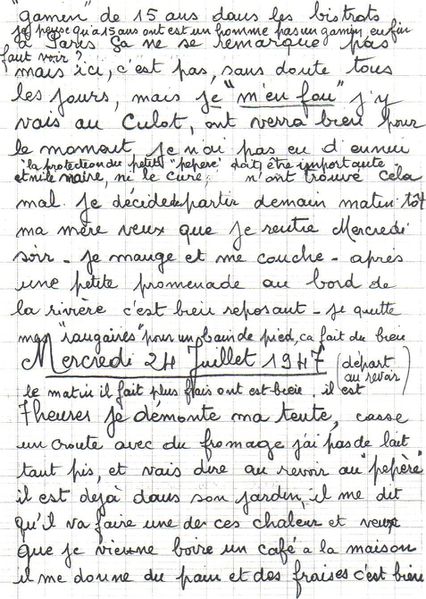 "gamin" de 15 ans dans les bistrots
je pense qu'a 15 ans ont est un homme pas un gamin, enfin
à Paris ça ne se remarque pas
faut voir ?
mais ici, c'est pas, sans doute tous
les jours, mais je "m'en fou" j'y
vais au culot, ont verra bien pour
le moment je n'ai pas eu d'ennui
"la protection du petit "pépère" doit être importante
et ni le maire, ni le curé, n'ont trouvé cela
mal. je décide de partir demain matin tôt
ma mère veux que je rentre Mercredi
soir - je mange et me couche - après
une petite promenade au bord de
la rivière c'est bien reposant - je quitte
mes "rangaires" pour un bain de pied, ca fait du bien
Mercredi 24 Juillet 1947 (départ
au revoir)
le matin il fait plus frais ont est bien. il est
7 heures je démonte ma tente, casse
un croute avec du fromage j'ai pas de lait
tant pis, et vais dire au revoir au "pépère"
il est dejà dans son jardin, il me dit
qu'il va faire une de ces chaleur et veux
que je vienne boire un café a la maison
il me donne du pain et des fraises c'est bien